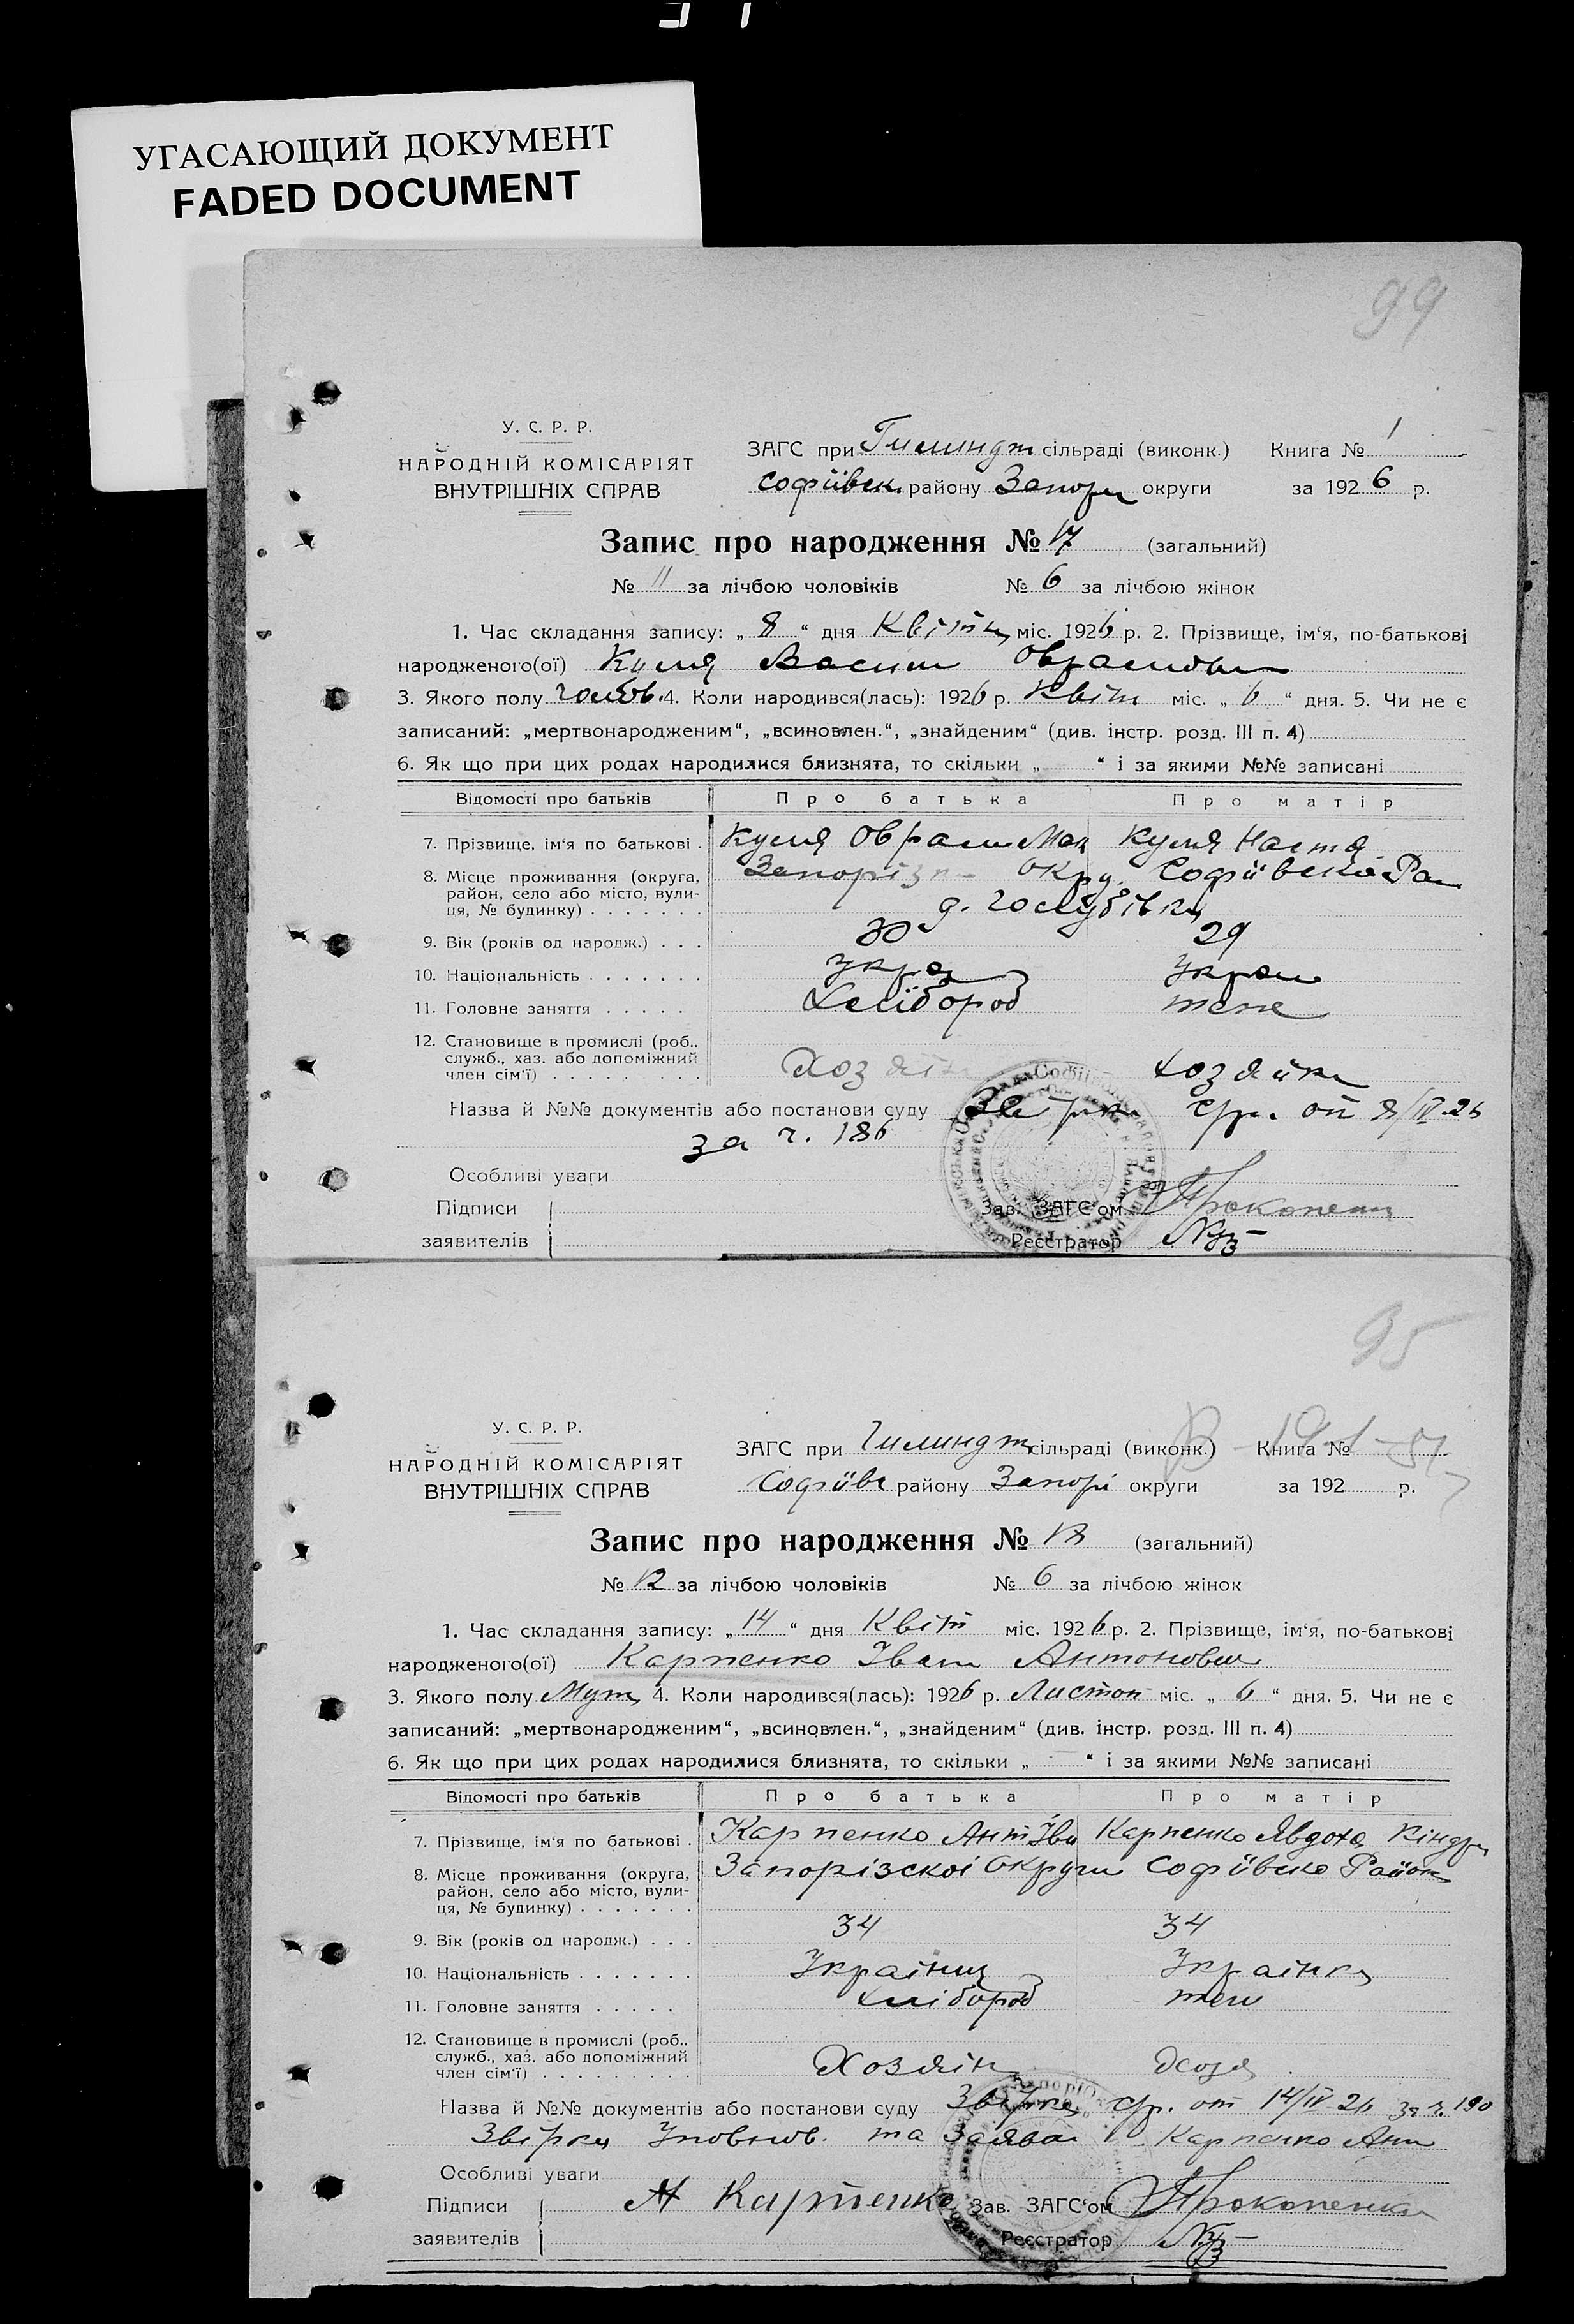 УГАСАЮЩИЙ ДОКУМЕНТ
FADED DOCUMENT
99
У. С. Р. Р.
НАРОДНІЙ КОМІСАРІЯТ
ВНУТРІШНІХ СПРАВ
ЗАГС при сільраді (виконк.) Книга № 1
Софіївськ району Запорі округи за 1926 р.
Запис про народження № 17 (загальний)
№ 11 за лічбою чоловіків № 6 за лічбою жінок
1. Час складання запису: „ 8 “ дня Квітн міс. 1926 р. 2. Прізвище, ім‘я, по-батькові
народженого(ої) Василь
3. Якого полу 4. Коли народився(лась): 1926 р. Квітн міс. „ 6 “ дня. 5. Чи не є
записаний: „мертвонародженим“, „всиновлен.“, „знайденим“ (див. інстр. розд. III п. 4)
6. Як що при цих родах народилися близнята, то скільки „ “ і за якими №№ записані
Відомості про батьків Про батька Про матір
7. Прізвище, ім‘я по батькові . Настя
8. Місце проживання (округа, Запорізк Окру. Софіївської Рай
район, село або місто, вули-
ця, № будинку) . . . . . . .
9. Вік (років од народж.) . . . 30 29
10. Національність . . . . . . . Укра Украї
11. Головне заняття . . . . . Хлібороб теж
12. Становище в промислі (роб..
служб., хаз. або допоміжний
член сім‘ї) . . . . . . . . . Хозяїн Хозяйка
Назва й №№ документів або постанови суду Звірка с/р. от 8/IV-26
за ч. 186
Особливі уваги
Підписи
заявителів
Зав. ЗАГС‘ом Прокопенко
Реєстратор
95
У. С. Р. Р.
НАРОДНІЙ КОМІСАРІЯТ
ВНУТРІШНІХ СПРАВ
ЗАГС при сільраді (виконк.) Книга №
Софіївс району Запорі округи за 192 р.
Запис про народження № 18 (загальний)
№ 12 за лічбою чоловіків № 6 за лічбою жінок
1. Час складання запису: „ 14 “ дня Квітн міс. 1926 р. 2. Прізвище, ім‘я, по-батькові
народженого(ої) Карпенко Іван Антонович
3. Якого полу Муж 4. Коли народився(лась): 1926 р. Листоп міс. „ 6 “ дня. 5. Чи не є
записаний: „мертвонародженим“, „всиновлен.“, „знайденим“ (див. інстр. розд. III п. 4)
6. Як що при цих родах народилися близнята, то скільки „ “ і за якими №№ записані
Відомості про батьків Про батька Про матір
7. Прізвище, ім‘я по батькові . Карпенко Ант Іва Карпенко Явдоха Кіндр
8. Місце проживання (округа, Запорізскоі Округи Софіївсько Район
район, село або місто, вули-
ця, № будинку) . . . . . . .
9. Вік (років од народж.) . . . 34 34
10. Національність . . . . . . . Українц Українка
11. Головне заняття . . . . . Хлібороб теж
12. Становище в промислі (роб..
служб., хаз. або допоміжний
член сім‘ї) . . . . . . . . . Хозяїн Хозя
Назва й №№ документів або постанови суду Звірка с/р. от 14/IV 26 за ч. 190
Звірка та Заява Карпенко Ант
Особливі уваги
Підписи
заявителів
А Карпенко
Зав. ЗАГС‘ом Прокопенко
Реєстратор